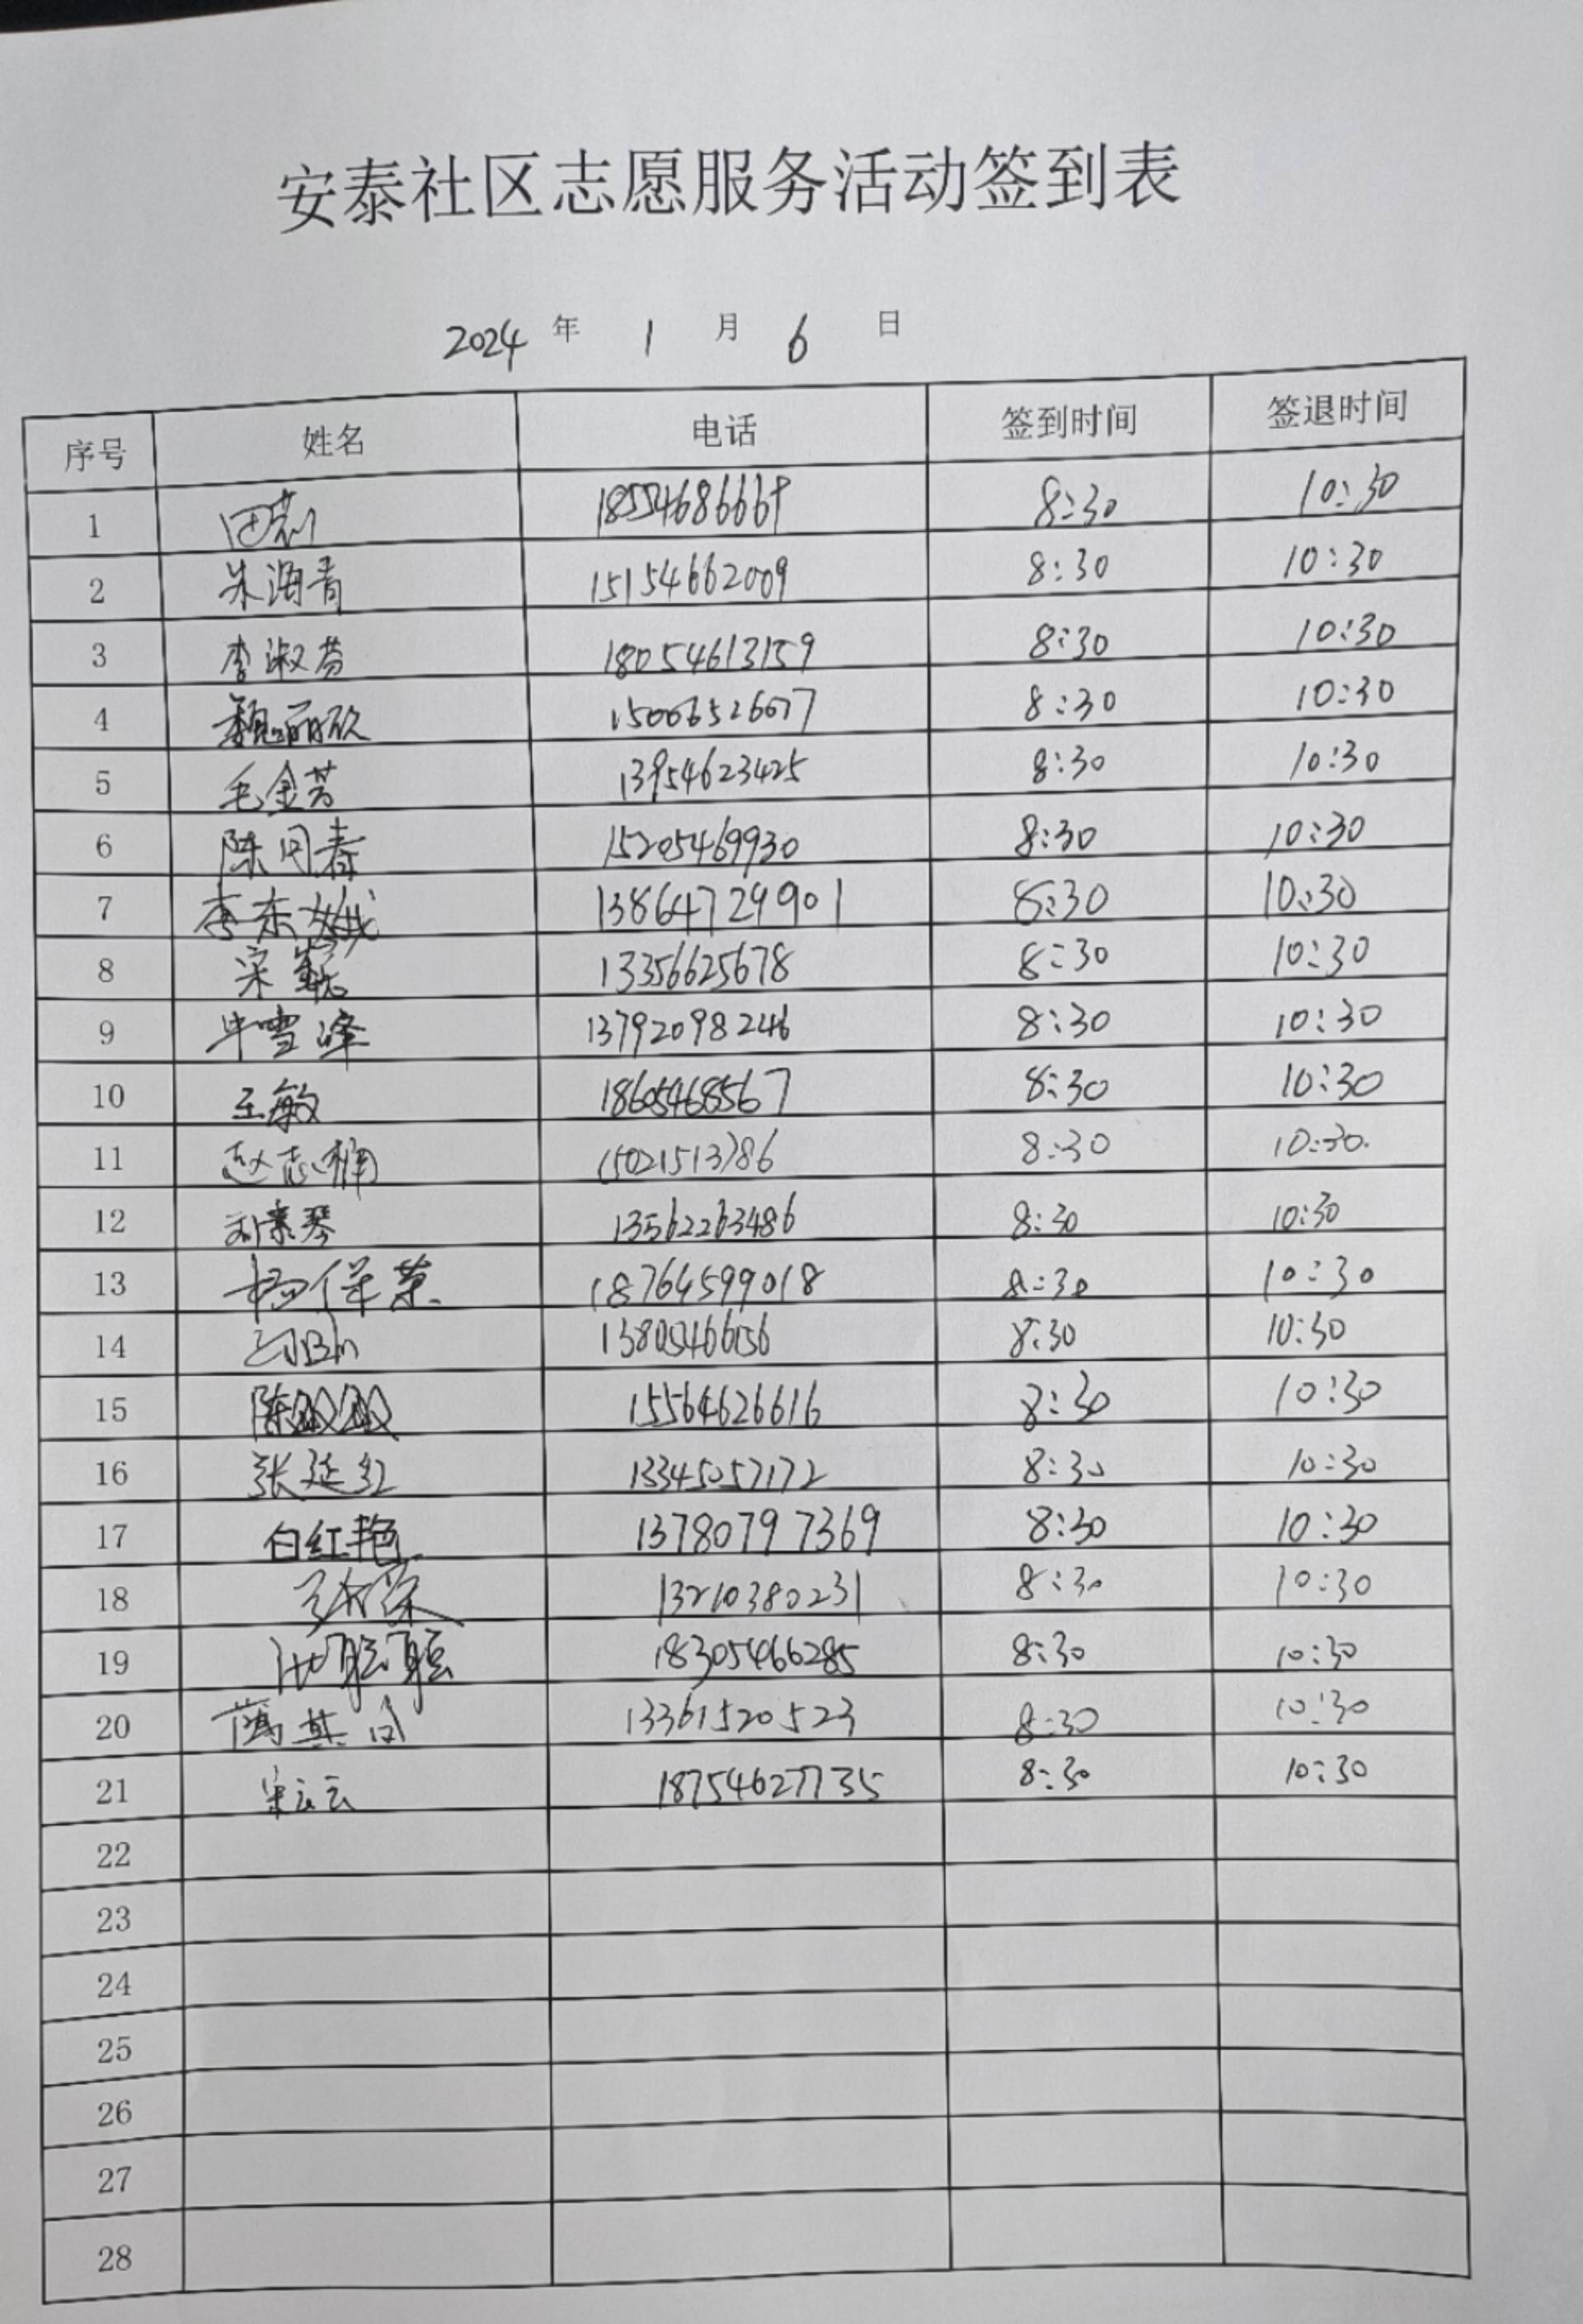 安泰社区志愿服务活动签到表
2024 年 1 月 6 日
序号 姓名 电话 签到时间 签退时间
1 田莉 18554686669 8:30 10:30
2 朱海青 15154662009 8:30 10:30
3 李淑芬 18054613159 8:30 10:30
4 魏丽欣 8:30 10:30
5 毛金芳 13954623425 8:30 10:30
6 陈同春 15205469930 8:30 10:30
7 李东 13864729901 8:30 10:30
8 宋 13356625678 8:30 10:30
9 牛雪峰 13792098246 8:30 10:30
10 王敏 18605468567 8:30 10:30
11 赵志楠 15021513786 8:30 10:30
12 刘素琴 13562263486 8:30 10:30
13 杨祥荣 18764599018 8:30 10:30
14 8:30 10:30
15 陈双双 15564626616 8:30 10:30
16 张延红 13345057172 8:30 10:30
17 白红艳 13780797369 8:30 10:30
18 13210380231 8:30 10:30
19 聪聪 18305466285 8:30 10:30
20 蔺其 13361520523 8:30 10:30
21 宋云云 18754627735 8:30 10:30
22
23
24
25
26
27
28